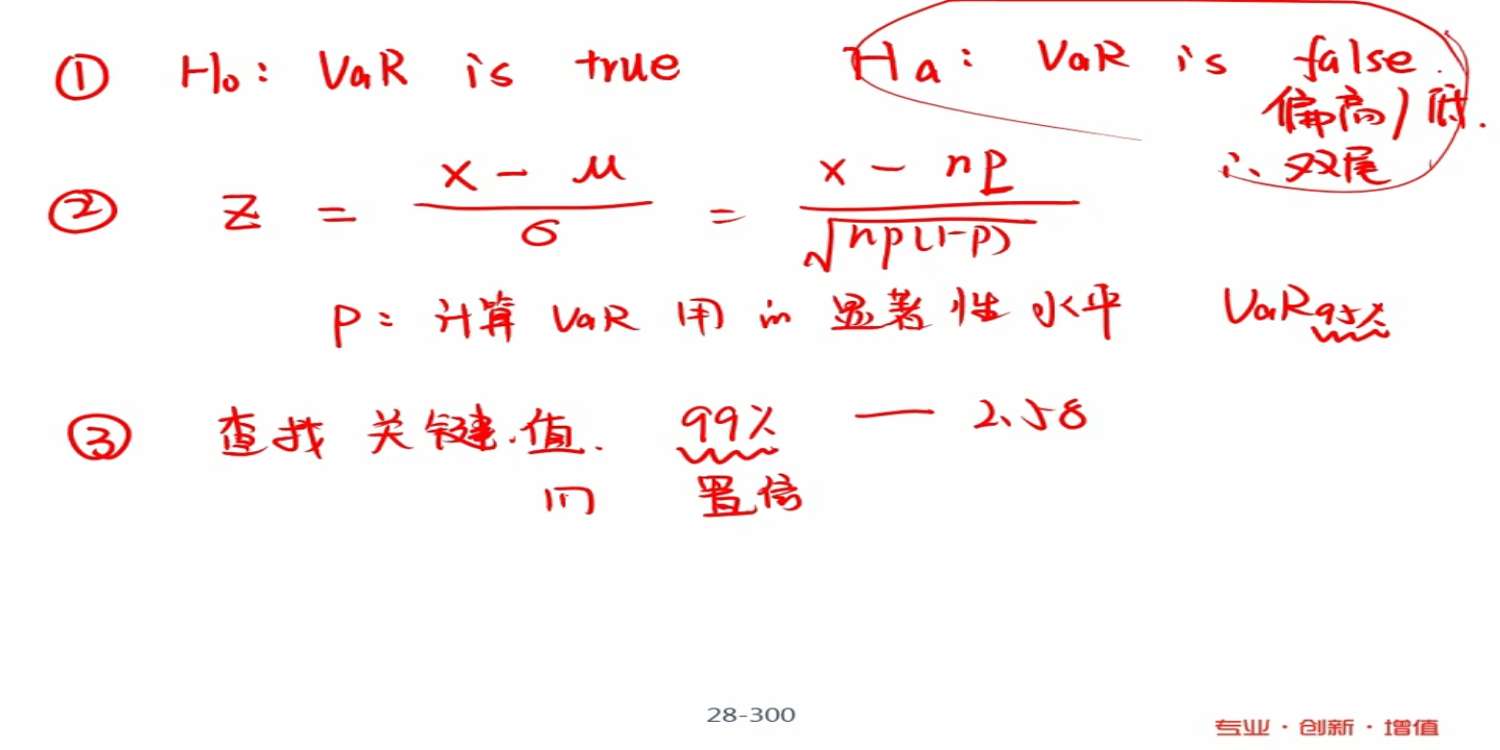 ① H₀: VaR is true Hₐ: VaR is false.
偏高/低.
∴ 双尾
② Z = (x - μ)/σ = (x - np)/√(np(1-p))
P: 计算 VaR 用的显著性水平 VaR95%
③ 查找关键值. 99% — 2.58
置信
28-300
专业·创新·增值